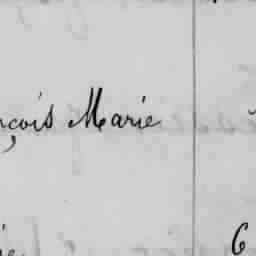 nçois Marie
6